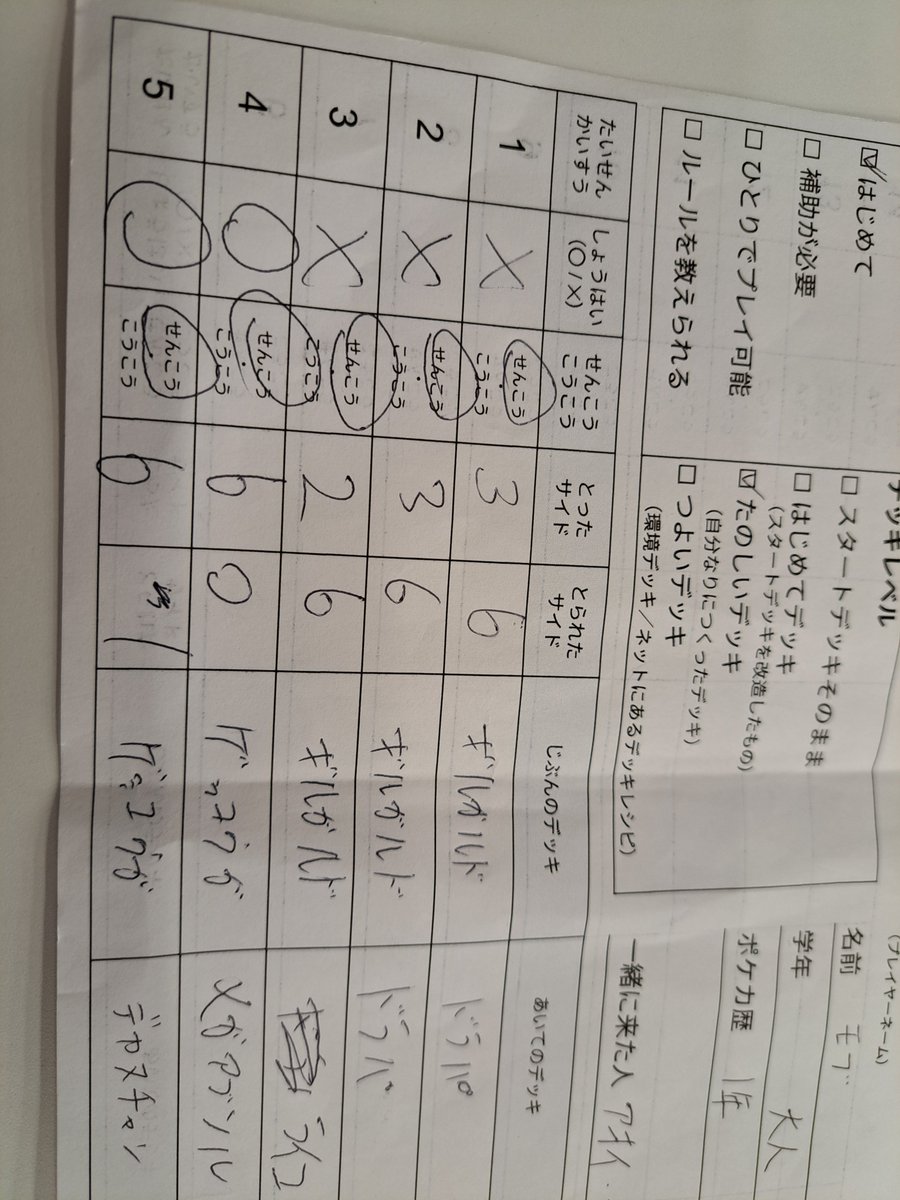 (プレイヤーネーム)
名前 モブ
学年 大人
ポケカ歴 1年
一緒に来た人 アキイ
☑はじめて
□補助が必要
□ひとりでプレイ可能
□ルールを教えられる
デッキレベル
□スタートデッキそのまま
□はじめてデッキ
(スタートデッキを改造したもの)
☑たのしいデッキ
(自分なりにつくったデッキ)
□つよいデッキ
(環境デッキ/ネットにあるデッキレシピ)
たいせんかいすう しょうはい(O/X) せんこうこうこう とったサイド とられたサイド じぶんのデッキ あいてのデッキ
1 X せんこう こうこう 3 6 ギルガルド ドラパ
2 X せんこう こうこう 3 6 ギルガルド ドラパ
3 X せんこう こうこう 2 6 ギルガルド ライコ
4 O せんこう こうこう 6 0 ゲッコウガ メガアブソル
5 O せんこう こうこう 6 1 ゲッコウガ デカヌチャン